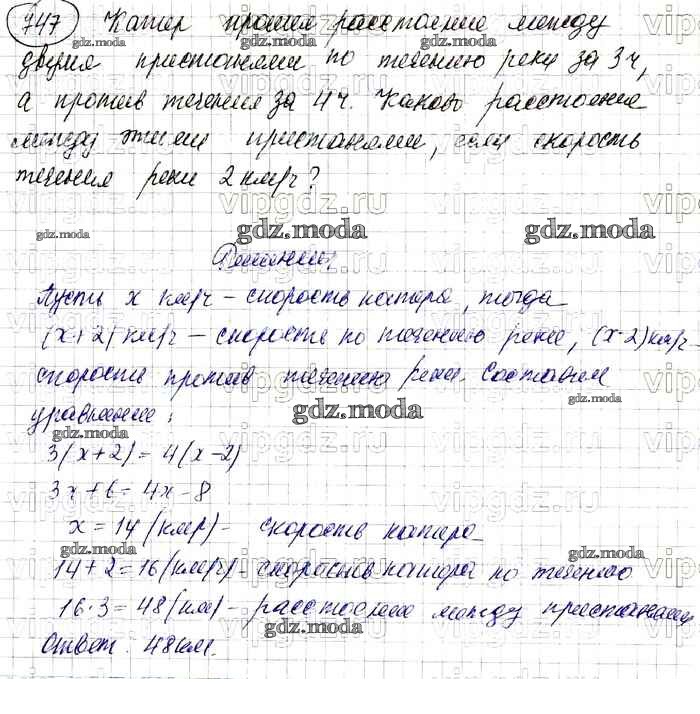 747 Катер прошёл расстояние между
двумя пристанями по течению реки за 3ч,
а против течения за 4ч. Каково расстояние
между этими пристанями, если скорость
течения реки 2 км/ч?
Решение
Пусть x км/ч – скорость катера, тогда
(x+2) км/ч – скорость по течению реки, (x-2) км/ч –
скорость против течения реки. Составим
уравнение:
3(x+2)=4(x-2)
3x+6=4x-8
x=14 (км/ч) – скорость катера
14+2=16 (км/ч) – скорость катера по течению
16·3=48 (км) – расстояние между пристанями
Ответ: 48 км.
vipgdz.ru
gdz.moda